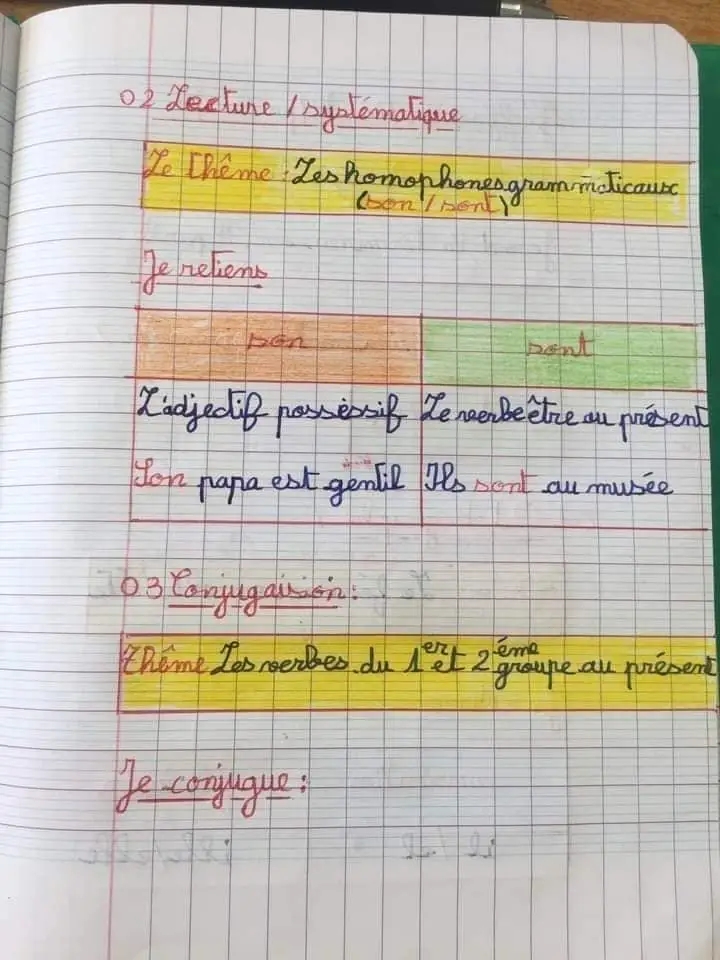 02 Lecture / systématique
Le thême : Les homophones grammaticaux
(son / sont)
Je retiens
son sont
L'adjectif possèssif Le verbe être au présent
Son papa est gentil Ils sont au musée
03 Conjugaision :
thême Les verbes du 1er et 2éme groupe au présent
Je conjugue :